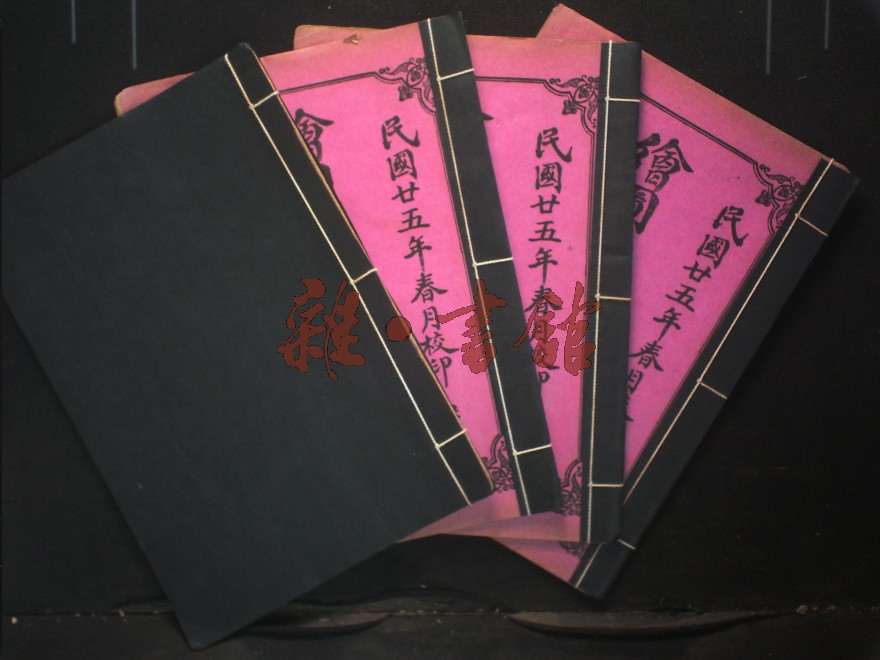 繪
民國廿五年春月校印
民國廿五年春月
印
繪圖
民國廿五年春月
雜·書館